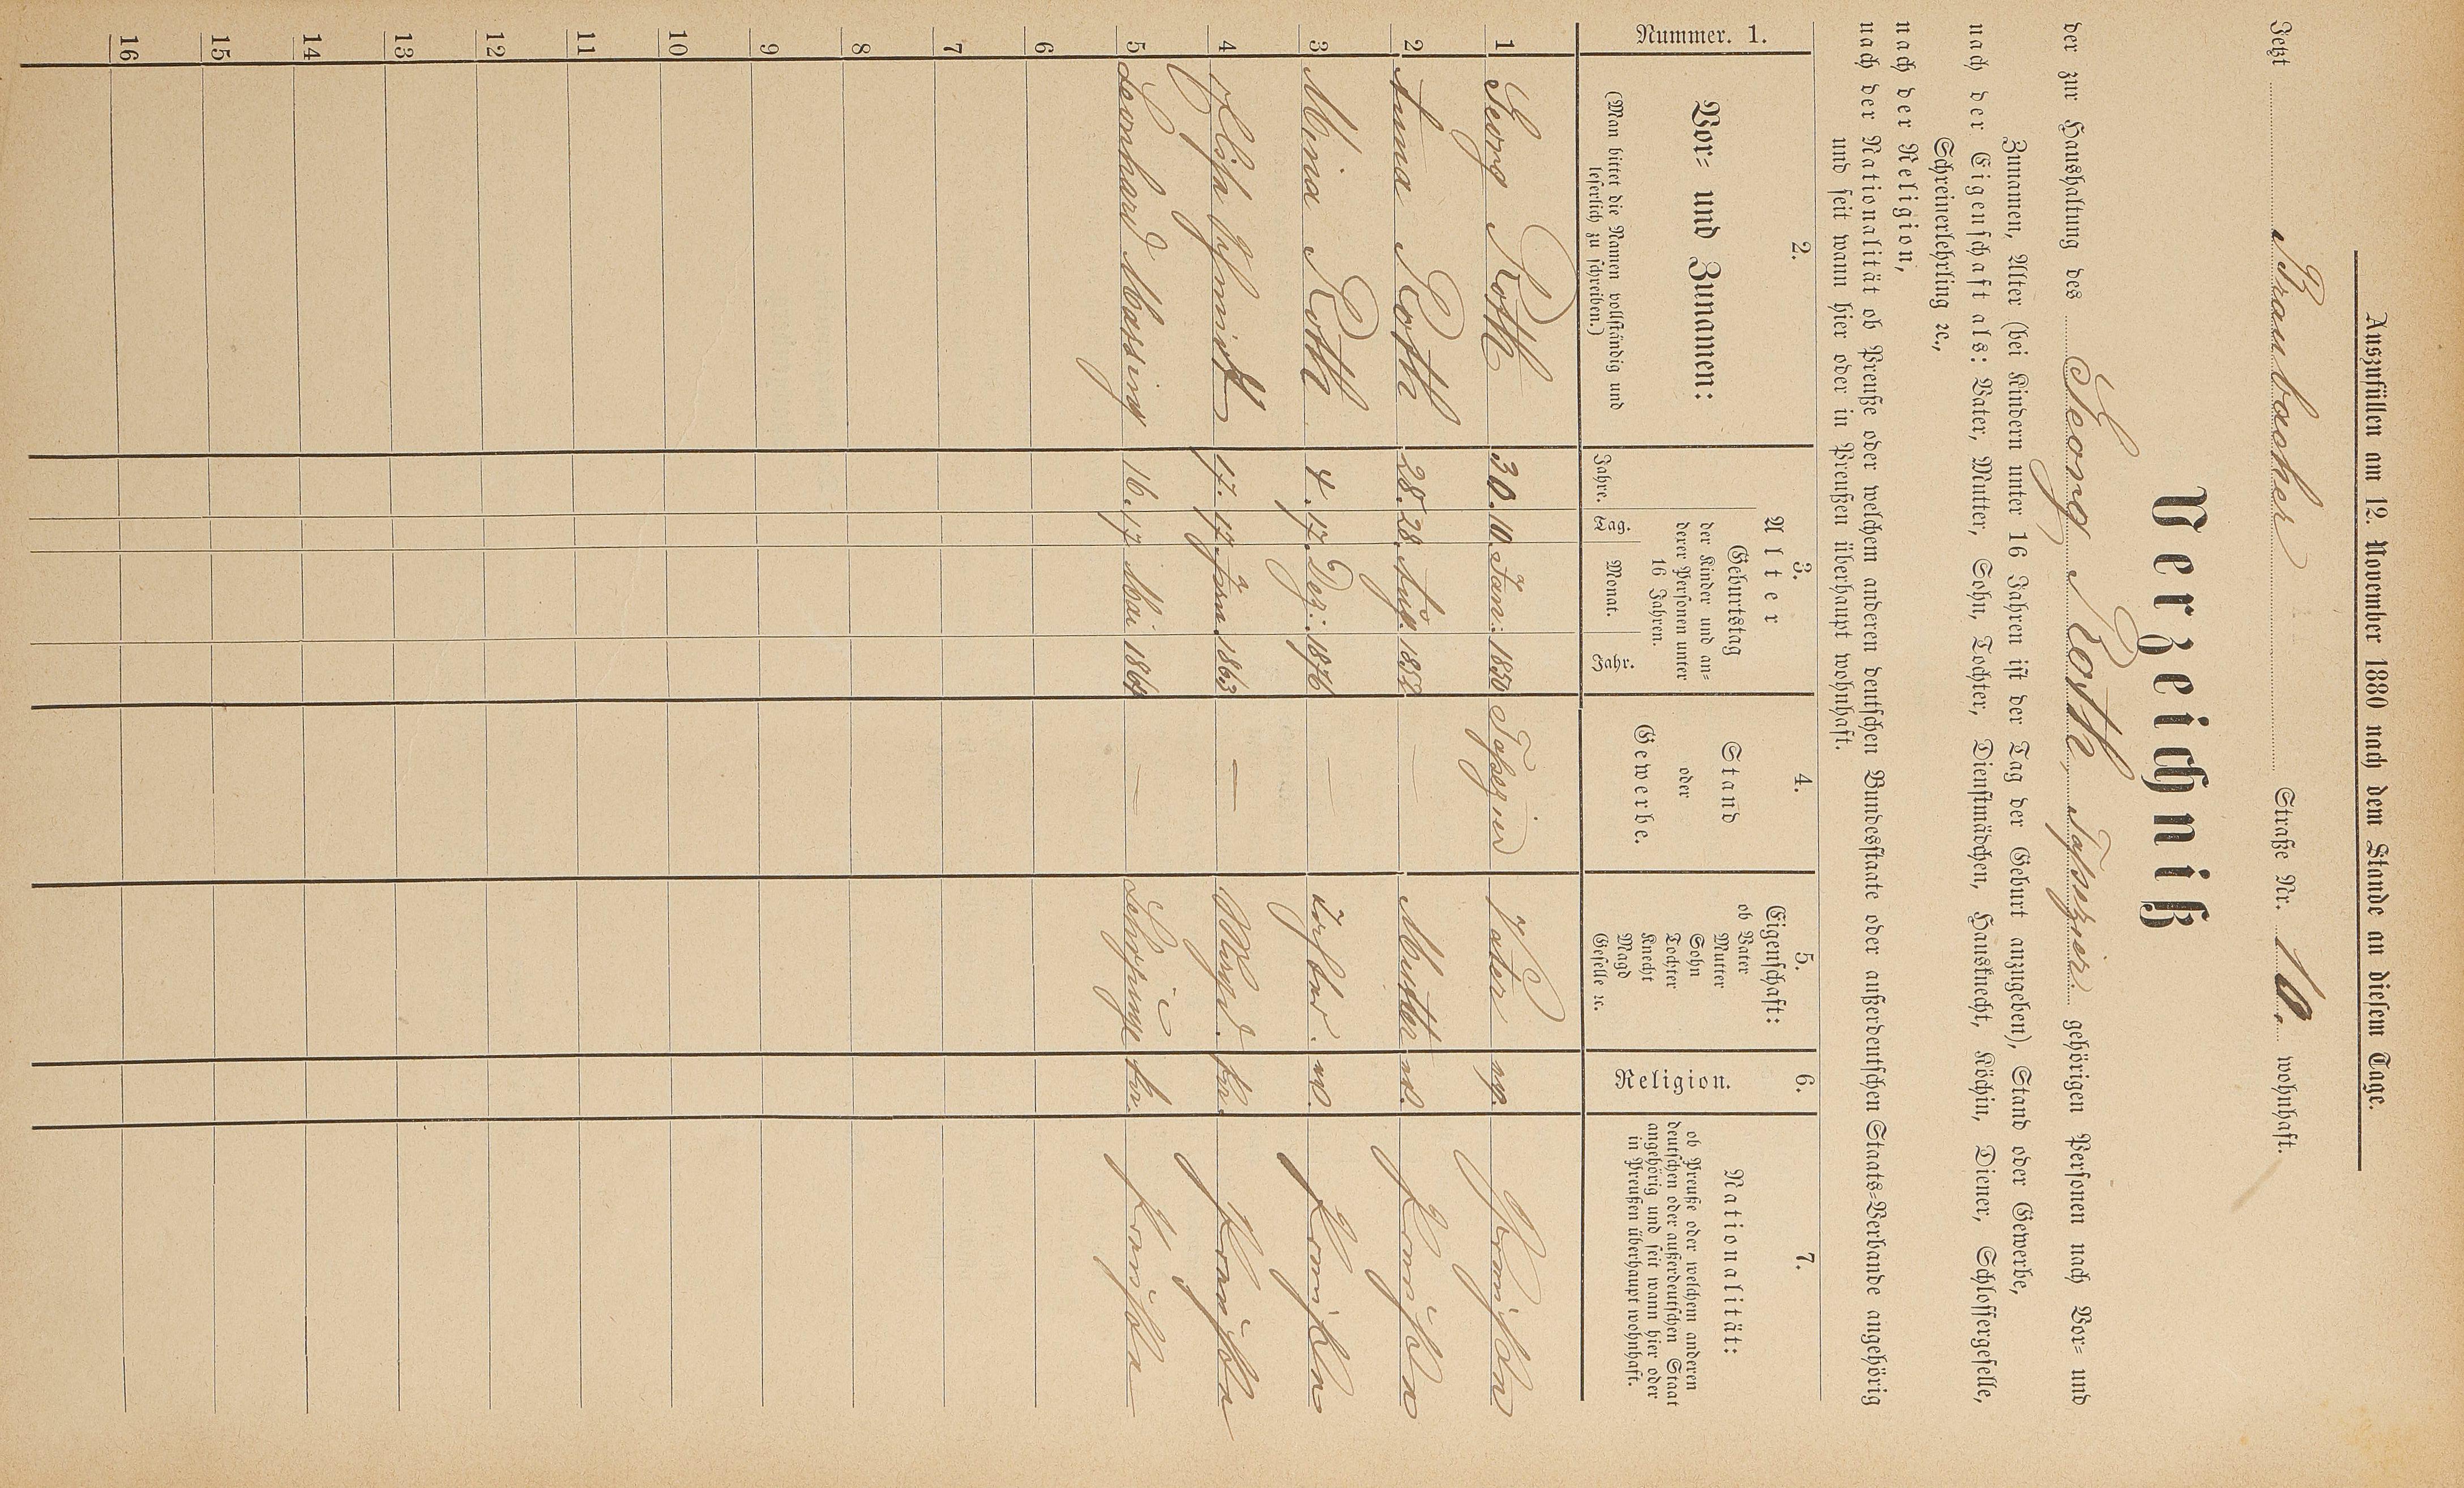 Auszufüllen am 12. November 1880 nach dem Stande an diesem Tage.
Jetzt Braubacher Straße Nr. 10. wohnhaft.
Verzeichniß
der zur Haushaltung des Georg Roth, Tapezier. gehörigen Personen nach Vor- und
Zunamen, Alter (bei Kindern unter 16 Jahren ist der Tag der Geburt anzugeben), Stand oder Gewerbe,
nach der Eigenschaft als: Vater, Mutter, Sohn, Tochter, Dienstmädchen, Hausknecht, Köchin, Diener, Schlossergeselle,
Schreinerlehrling ꝛc.,
nach der Religion,
nach der Nationalität ob Preuße oder welchem anderen deutschen Bundesstaate oder außerdeutschen Staats-Verbande angehörig
und seit wann hier oder in Preußen überhaupt wohnhaft.
Nummer. 1.
2.
Vor- und Zunamen:
(Man bittet die Namen vollständig und
leserlich zu schreiben.)
3.
Alter
Jahre.
Geburtstag
der Kinder und an-
derer Personen unter
16 Jahren.
Tag. Monat. Jahr.
4.
Stand
oder
Gewerbe.
5.
Eigenschaft:
ob Vater
Mutter
Sohn
Tochter
Knecht
Magd
Geselle ꝛc.
6.
Religion.
7.
Nationalität:
ob Preuße oder welchem anderen
deutschen oder außerdeutschen Staat
angehörig und seit wann hier oder
in Preußen überhaupt wohnhaft.
1 Georg Roth 30. 10. Jan: 1850 Tapezier Vater
2 Anna Roth 28. 28. Aug. 1852 — Mutter
3 Mina Roth 4. 17. Dez: 1876 —
4 17. 17. 1863 — Magd.
5 Leonhard Massing 16. 17 Mai 1864 — Lehrjunge
6
7
8
9
10
11
12
13
14
15
16